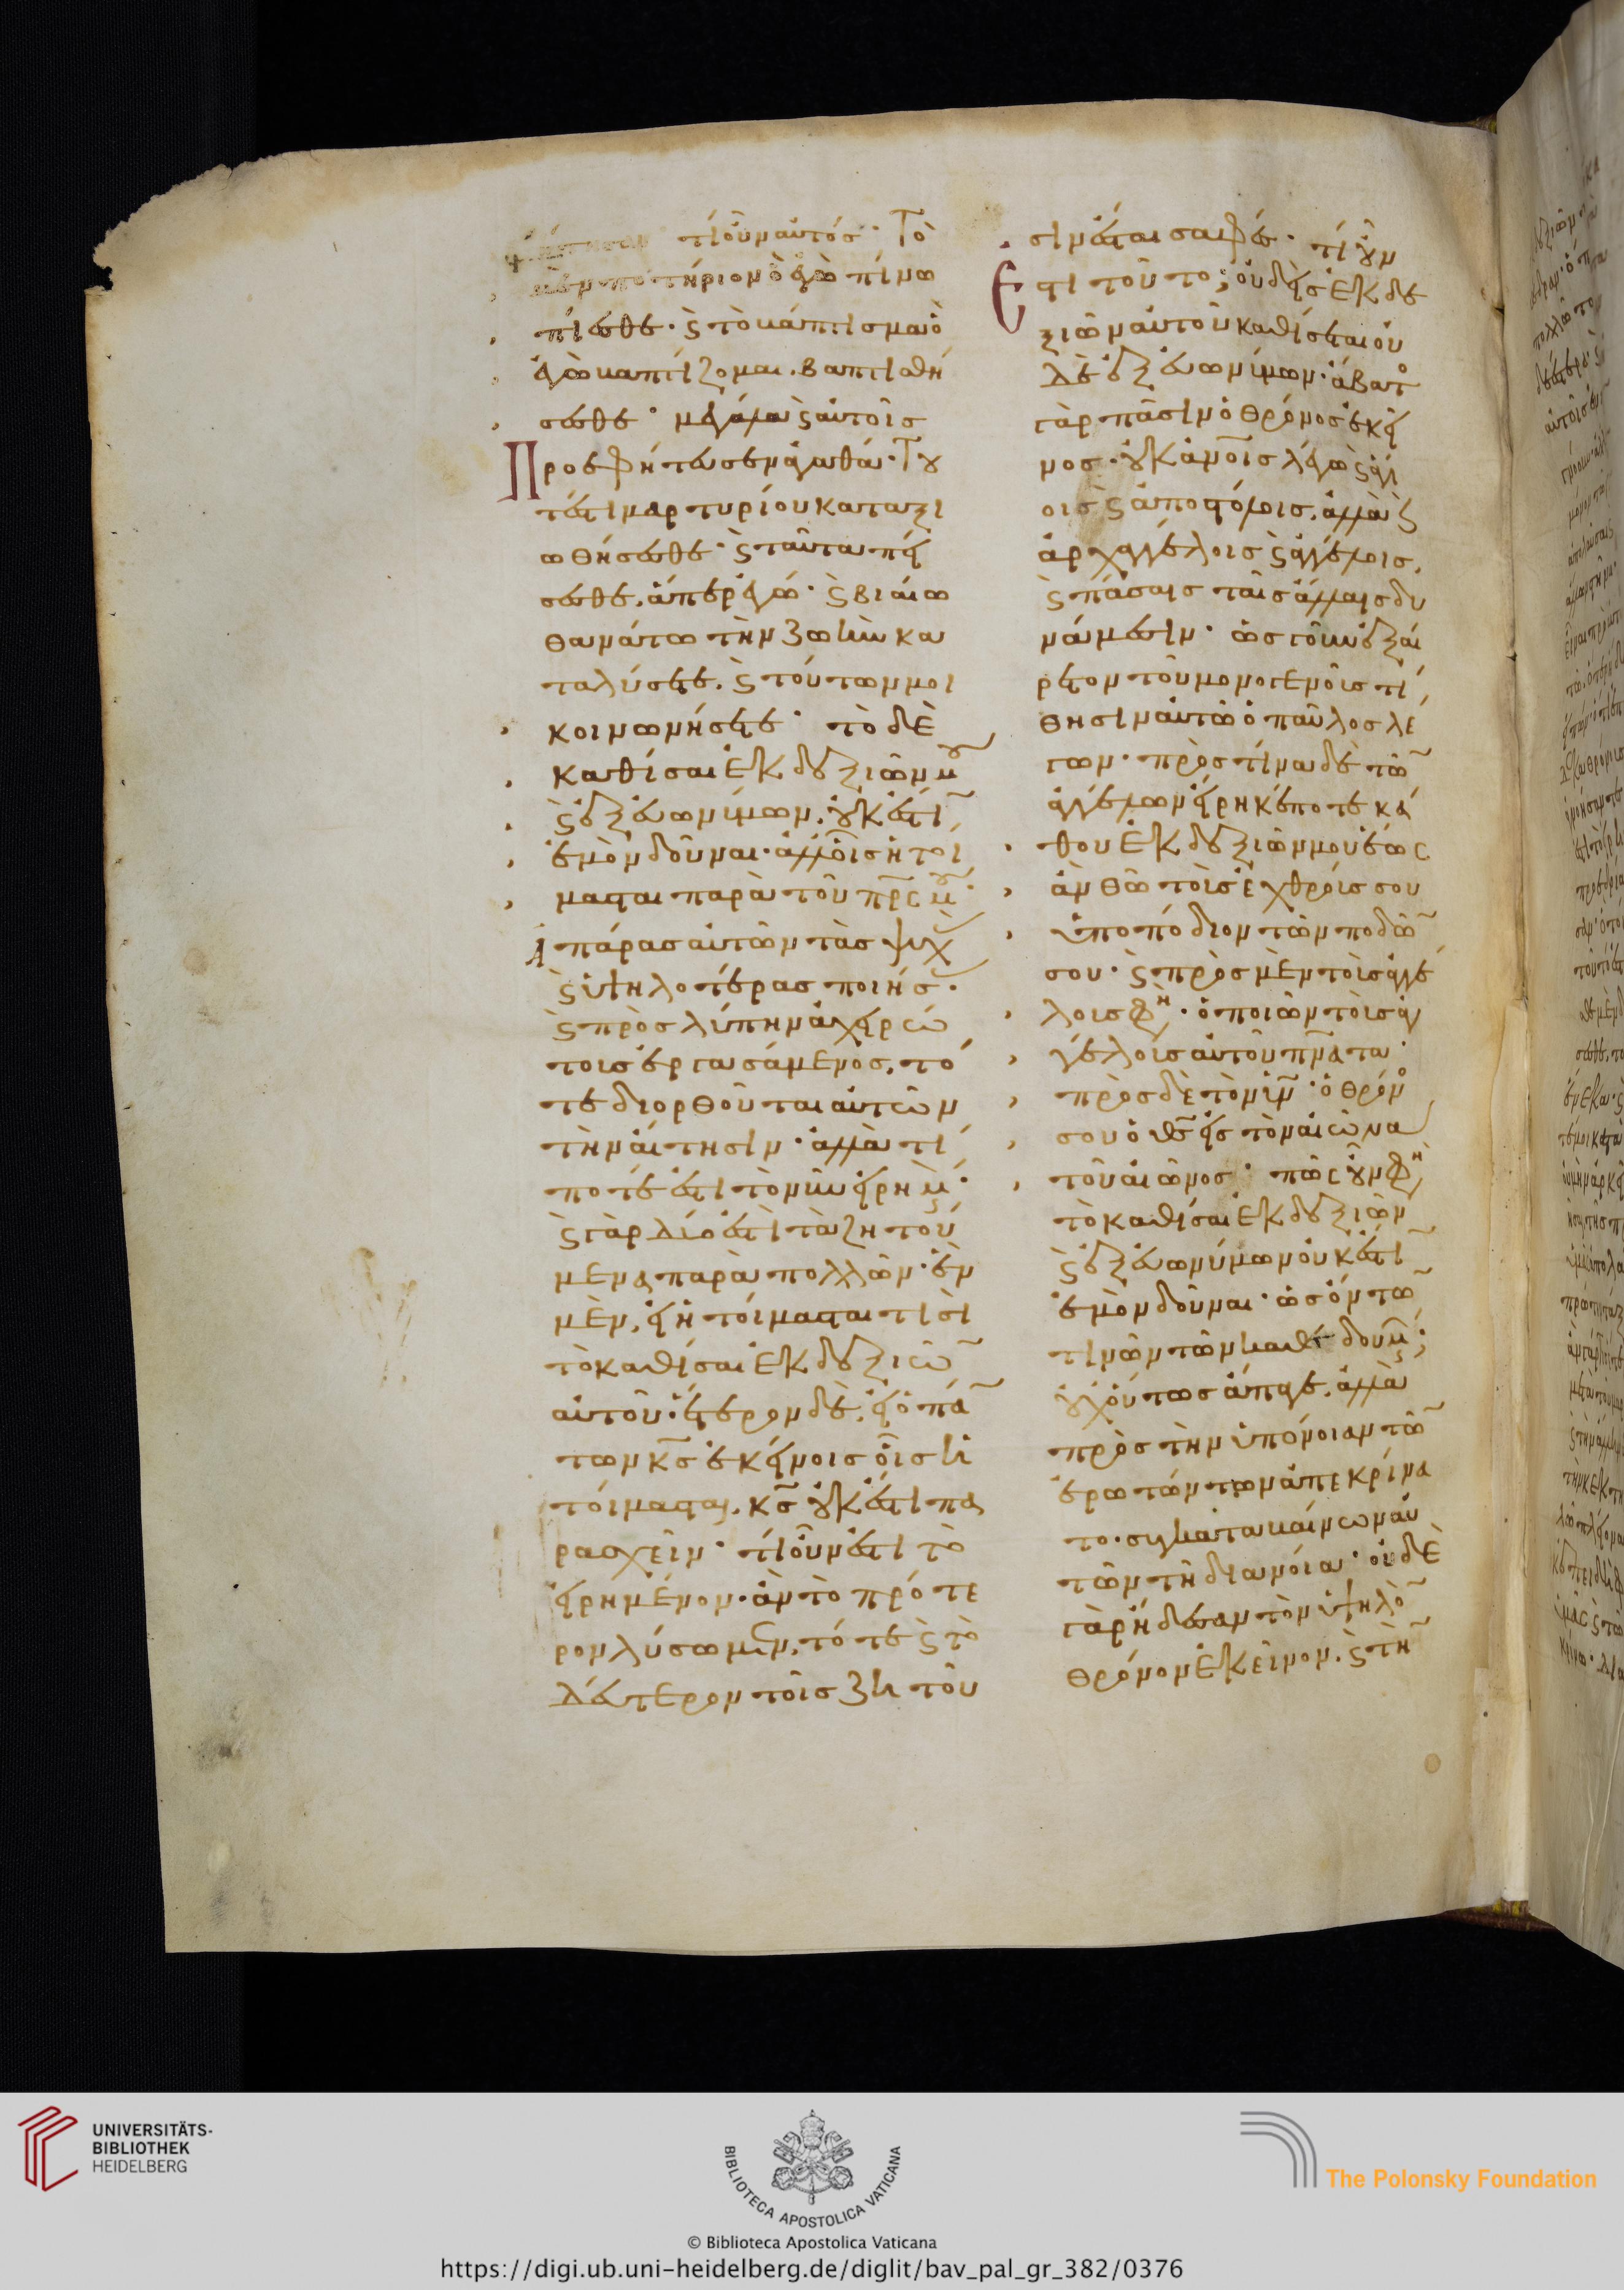 τί οὖν αὐτός· Τὸ
μὲν ποτήριον ὃ ἐγὼ πίνω
πίεσθε· καὶ τὸ βάπτισμα ὃ
ἐγὼ βαπτίζομαι. βαπτισθή
σεσθε· μεγάλα καὶ αὐτοῖς
Προεφήτευσεν ἀγαθά· Του
τέστι μαρτυρίου καταξι
ωθήσεσθε· καὶ ταῦτα πεί
σεσθε, ἅπερ ἐγώ· καὶ βιαίω
θανάτω τὴν ζωὴν κα
ταλύσετε. καὶ τούτων μοι
κοινωνήσετε· τὸ δὲ
καθίσαι ἐκ δεξιῶν μου
καὶ ἐξ εὐωνύμων, οὐκ ἔστιν
ἐμὸν δοῦναι· ἀλλ' οἷς ἡτοί
μασται παρὰ τοῦ πρς μου·
Ἐπάρας αὐτῶν τὰς ψυχ
καὶ ὑψηλοτέρας ποιήσ·
καὶ πρὸς λύπην ἀχειρώ
τοις ἐργασάμενος, τό
τε διορθοῦται αὐτῶν
τὴν αἴτησιν· ἀλλὰ τί
ποτέ ἐστι τὸ νῦν εἰρημ·
καὶ γὰρ δύο ἐστὶ τὰ ζητού
μενα παρὰ πολλῶν· ἓν
μὲν, εἰ ἡτοίμασται τισὶ
τὸ καθίσαι ἐκ δεξιῶν
αὐτοῦ· ἕτερον δὲ, εἰ ὁ πάν
των κς ἐκείνοις οἷς ἡ
τοίμασται, κς οὐκ ἔστι πα
ρασχεῖν· τί οὖν ἐστι τὸ
εἰρημένον· ἂν τὸ πρότε
ρον λύσωμεν, τότε καὶ τὸ
δεύτερον τοῖς ζητοῦ
σιν ἔσται σαφές· τί οὖν
ἐστι τοῦτο; οὐδεὶς ἐκ δε
ξιῶν αὐτοῦ καθίσεται οὐ
δὲ ἐξ εὐωνύμων· ἄβατος
γὰρ πᾶσιν ὁ θρόνος ἐκεῖ
νος· οὐκ ἀνοις λέγω καὶ ἁγί
οις καὶ ἀποστόλοις, ἀλλὰ καὶ
ἀρχαγγέλοις καὶ ἀγγέλοις,
καὶ πάσαις ταῖς ἄλλαις δυ
νάμεσιν· ὡς γοῦν ἐξαί
ρετον τοῦ μονογενοῦς τί
θησιν αὐτὸ ὁ παῦλος λέ
γων· πρὸς τίνα δὲ τῶν
ἀγγέλων εἴρηκέ ποτε κά
θου ἐκ δεξιῶν μου ἕως
ἂν θῶ τοὺς ἐχθρούς σου
ὑποπόδιον τῶν ποδῶν
σου· καὶ πρὸς μὲν τοὺς ἀγγέ
λους φη· ὁ ποιῶν τοὺς ἀγ
γέλους αὐτοῦ πνατα·
πρὸς δὲ τὸν υν· ὁ θρόνος
σου ὁ θς εἰς τὸν αἰῶνα
τοῦ αἰῶνος· πῶς οὖν φη
τὸ καθίσαι ἐκ δεξιῶν
καὶ ἐξ εὐωνύμων οὐκ ἔστιν
ἐμὸν δοῦναι· ὡς ὄντων
τινῶν τῶν καθεδουμ;
οὐχ οὕτως ἄπαγε, ἀλλὰ
πρὸς τὴν ὑπόνοιαν τῶν
ἐρωτώντων ἀπεκρίνα
το· συγκαταβαίνων αὐ
τῶν τῇ διανοία· οὐδὲ
γὰρ ἤδεσαν τὸν ὑψηλὸν
θρόνον ἐκεῖνον. καὶ τὴν
UNIVERSITÄTS-
BIBLIOTHEK
HEIDELBERG
BIBLIOTECA APOSTOLICA VATICANA
The Polonsky Foundation
© Biblioteca Apostolica Vaticana
https://digi.ub.uni-heidelberg.de/diglit/bav_pal_gr_382/0376